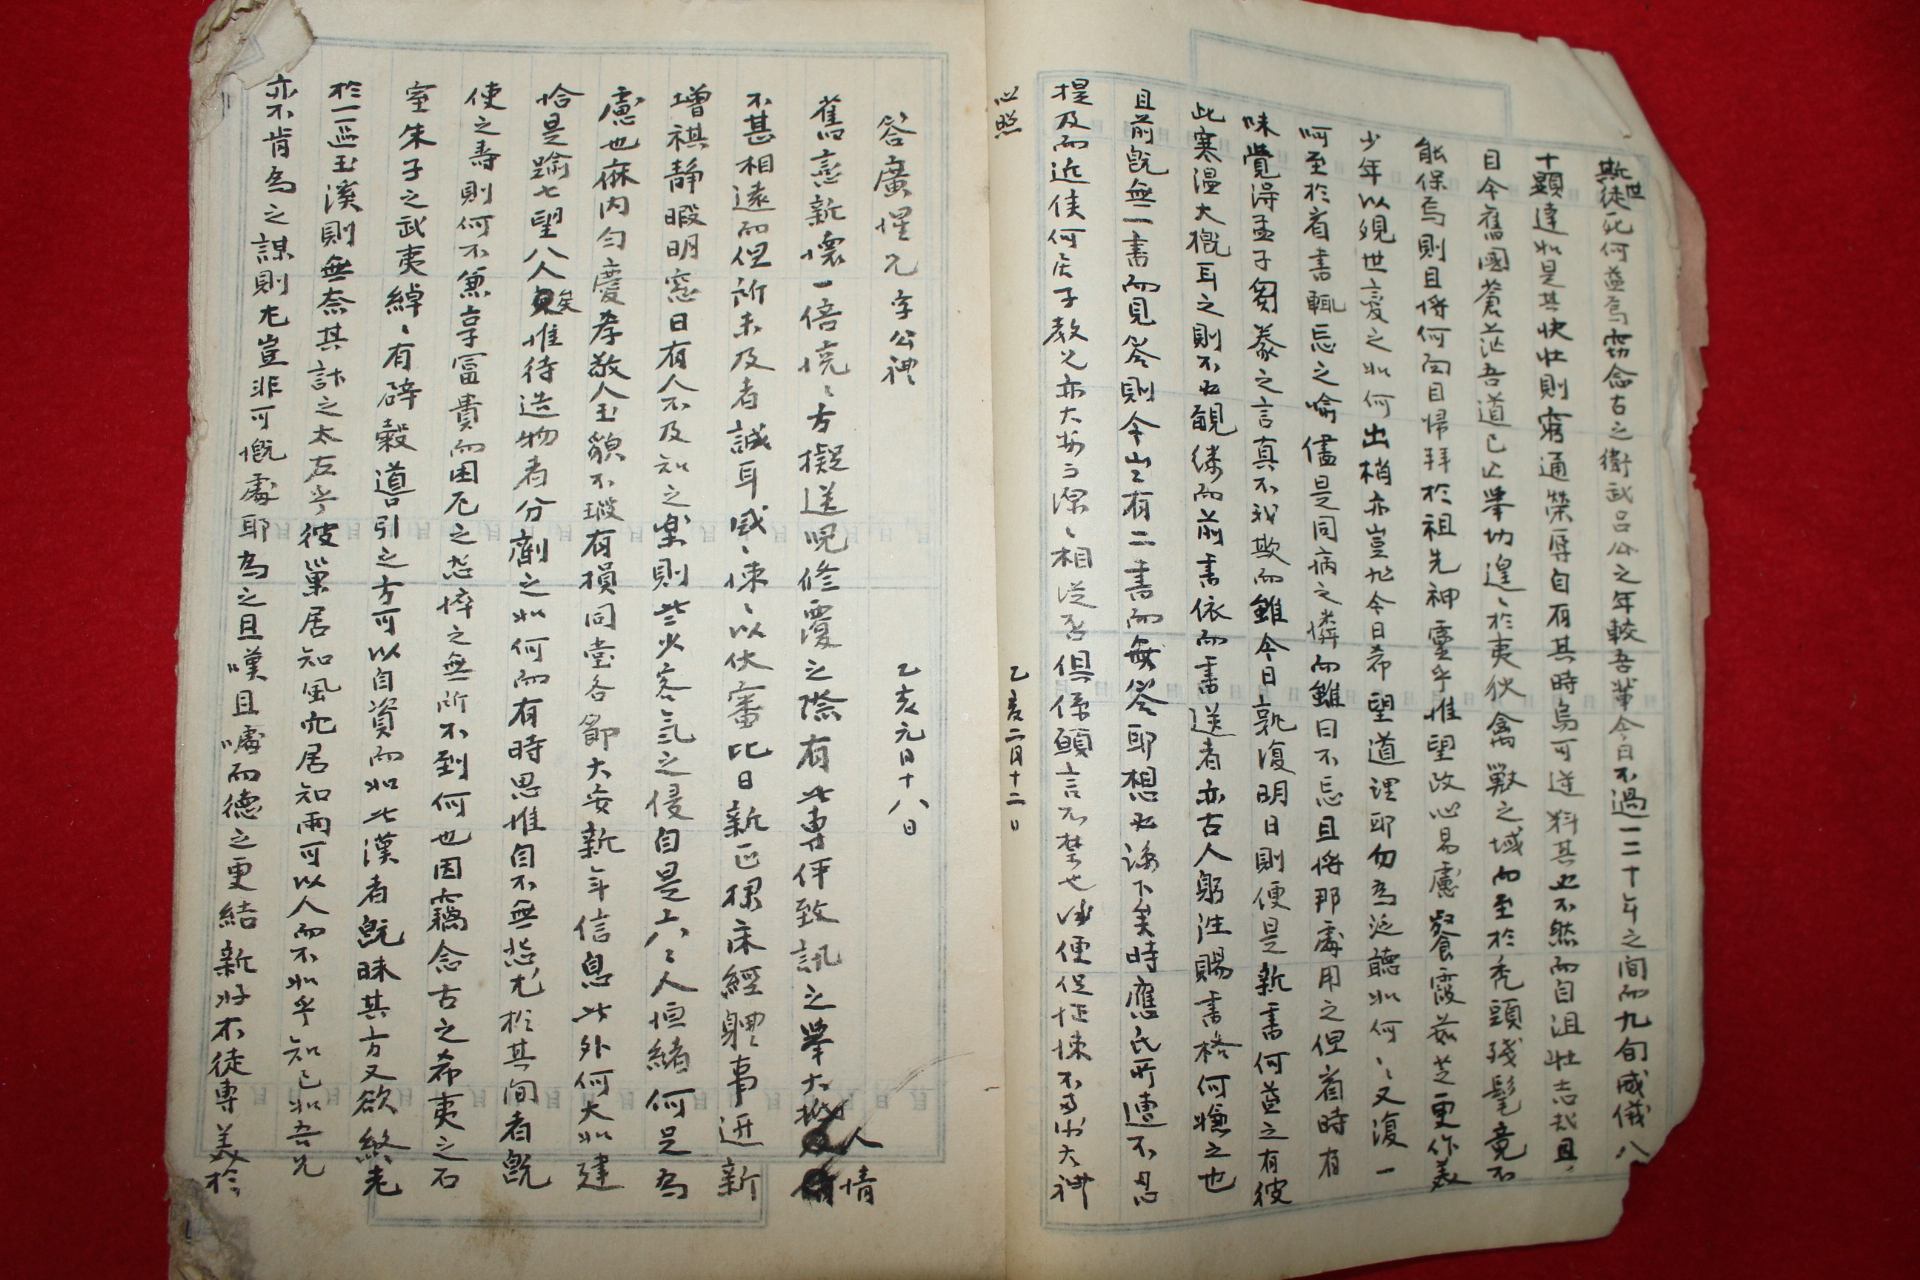 斯世徒死何益焉窃念古之衛武呂公之年較吾輩今日不過一二十年之間而九旬威儀八
十顯達如是其快壮則窮通榮辱自有其時烏可逆料其必不然而自沮壮志哉且
目今舊國蒼茫吾道已亡擧切遑、於夷狄禽獸之域而至於禿頭殘髦竟不
能保焉則且将何面目帰拜於祖先神靈乎惟望改心易慮餐霞茹芝更作美
少年以殿世憂之如何出梢亦豈非今日希望道理耶勿為泛聽如何、又復一
呵至於看書輒忘之喩儘是同病之憐而雖曰不忘且将那處用之但看時有
味覺得孟子芻豢之言真不我欺而雖今日孰復明日則便是新書何益之有彼
此寒温大槪耳之則不必覶縷而前書依而書送者亦古人躬注賜書格何慊之也
且前旣無一書而見答則今豈有二書而每答耶想必海下矣時應氏所遭不忍
提及而近侠何居子教兄亦大安方深、相從否俱係願言不禁也歲便促忙悚不多水大禅
心照
乙亥二月十二日
答廣惺兄字公禅
乙亥元日十八日
舊戀新懷一倍憢、方擬送児修覆之際有此專伻致訊之擧大抵人情
不甚相遠而但所未及者誠耳感、悚、以伏審比日新正裸床經體事迓新
增祺靜暇明窓日有人不及知之楽則些少寒氣之侵自是上八、人恒緖何足為
慮也庥内勻慶孝敬人玉貌不瑕有損同堂各節大安新年信息此外何大如建
恰是踰七望八人矣惟待造物者分劑之如何而有時思惟自不無悲尤於其間者旣
使之壽則何不兼享富貴而困厄之怨悴之無所不到何也因竊念古之希夷之石
室朱子之武夷綽、有辟穀導引之方可以自資而如此漢者旣昧其方又欲終老
於一區玉溪則無奈其計之太左乎彼巢居知風穴居知雨可以人而不如乎知己如吾兄
亦不肯為之謀則尤豈非可慨處耶為之且嘆且嘘而德之更結新好不徒專美於